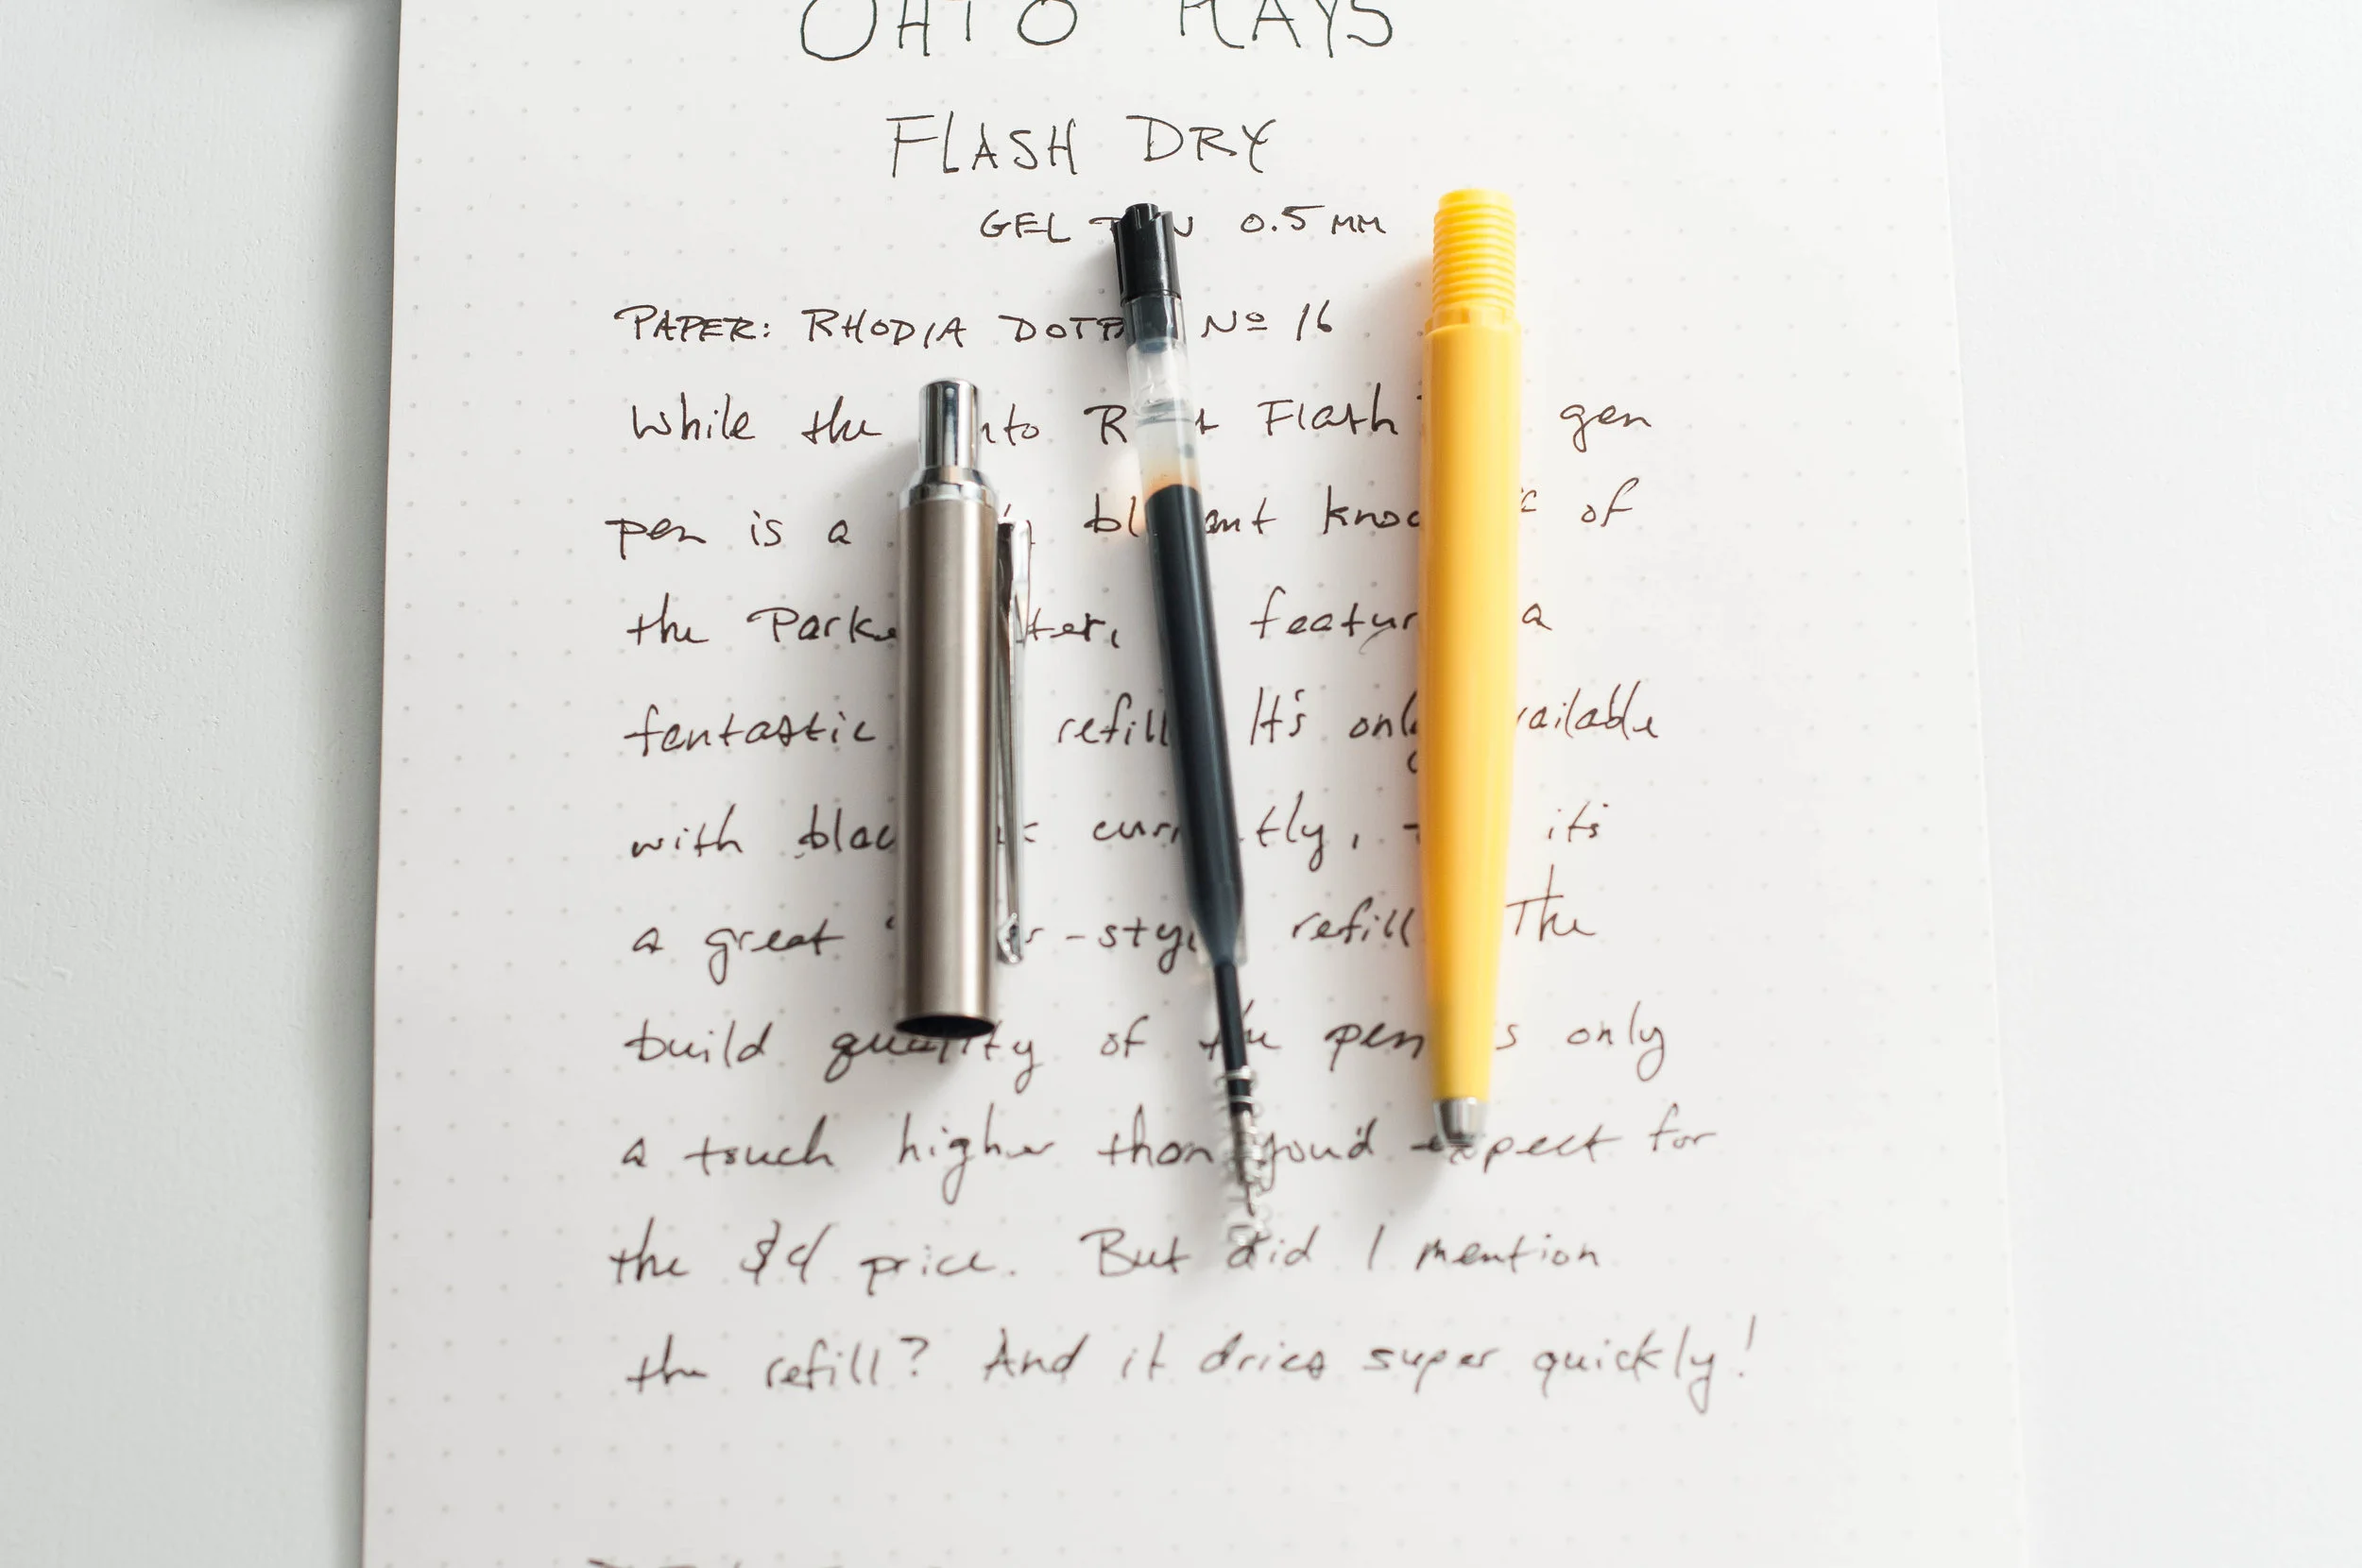 OHTO RAYS
FLASH DRY
GEL PEN 0.5 MM
PAPER: RHODIA DOTPAD Nº 16
While the Ohto Flash gen
pen is a of
the Parker a
fantastic refill It's only available
with black currently, it's
a great -style refill The
build quality of the pen is only
a touch higher than you'd expect for
the $4 price. But did I mention
the refill? And it dries super quickly!